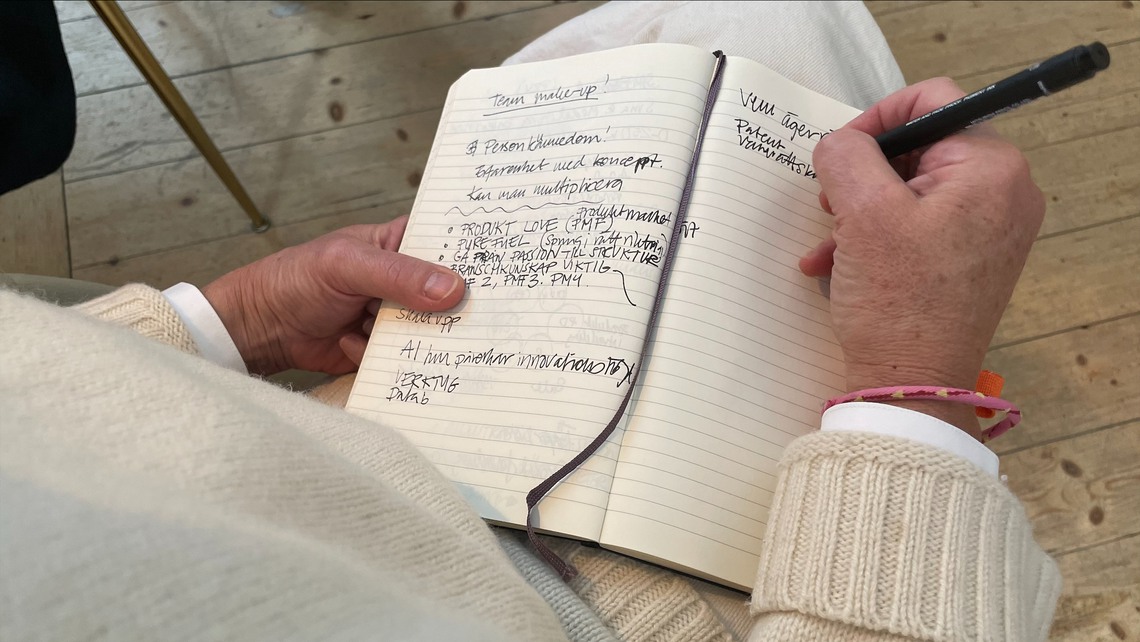 Team make-up!
# Personkännedom!
Erfarenhet med koncept.
Kan man multiplicera
Produktmarket
• PRODUKT LOVE (PMF) fit
• PURE FUEL (Spring i rätt riktning)
• GÅ FRÅN PASSION TILL STRUKTUR
BRANSCHKUNSKAP VIKTIG
2, PMF3. PM4.
Skala upp
AI hur påverkar innovations
VERKTYG
Datab
Vem äger
Patent